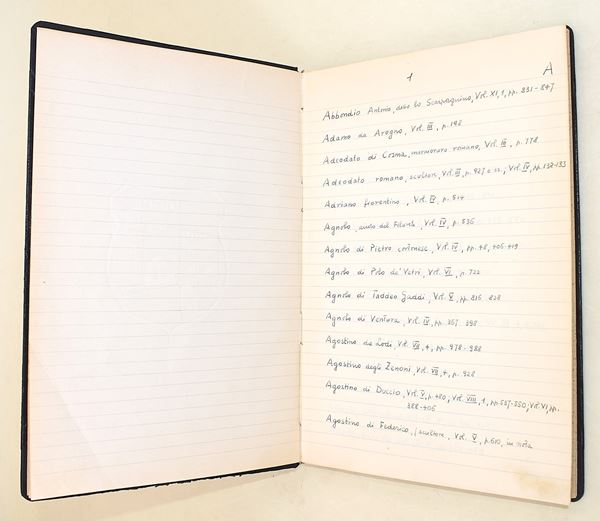 1 A
Abbondio Antonio, detto lo Scarpagnino, Vol. XI, 1, pp. 831-847
Adamo da Arogno, Vol. III, p. 198
Adeodato di Cosma, marmoraro romano, Vol. III, p. 778
Adeodato romano, scultore, Vol. III, p. 927 e ss.; Vol. IV, pp. 132-133
Adriano fiorentino, Vol. IV, p. 514
Agnolo, aiuto del Filarete, Vol. IV, p. 536
Agnolo di Pietro cortonese, Vol. IV, pp. 48, 406-419
Agnolo di Polo de' Vetri, Vol. VI, p. 722
Agnolo di Taddeo Gaddi, Vol. V, pp. 816-828
Agnolo di Ventura, Vol. IV, pp. 367-398
Agostino da Lodi, Vol. VII, 4, pp. 978-988
Agostino degli Zenoni, Vol. VII, 4, p. 928
Agostino di Duccio, Vol. V, p. 480; Vol. VIII, 1, pp. 537-550; Vol. VI, pp.
388-406
Agostino di Federico, scultore, Vol. V, p. 610, in nota